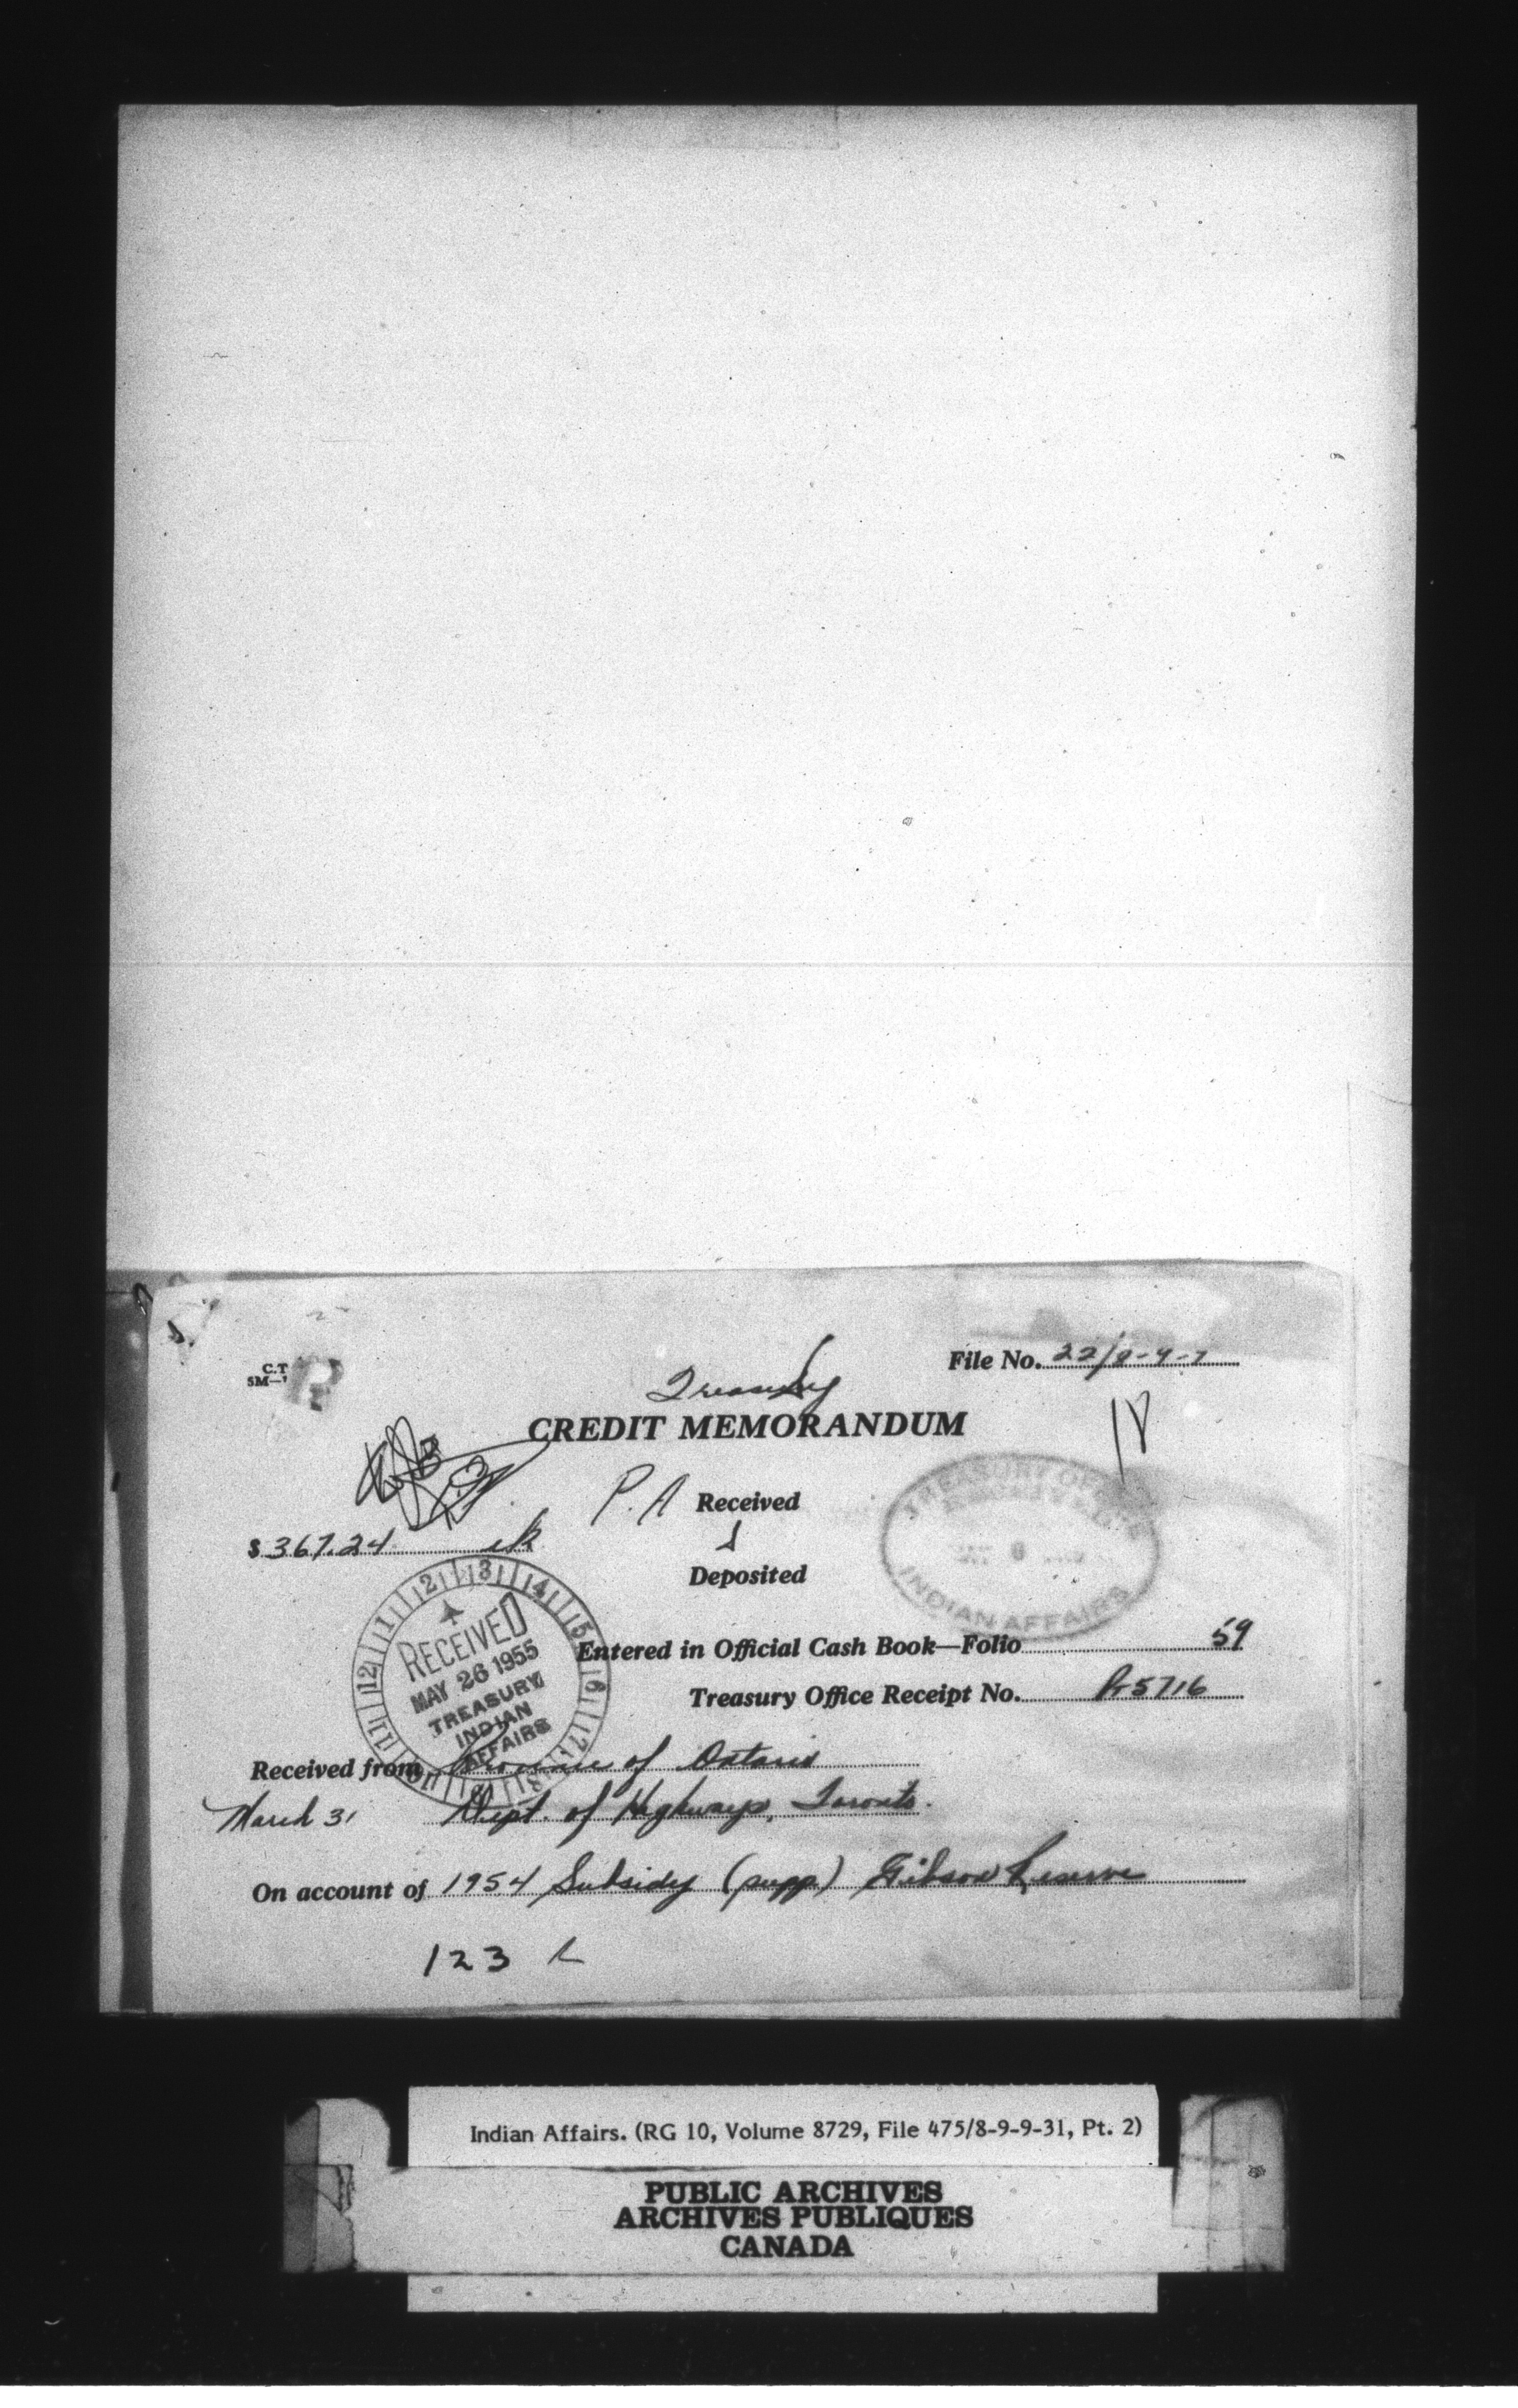 File No. 22/8-9-7
C.T
SM—
Treasury
CREDIT MEMORANDUM
18
P.A Received
$ 367.24
Deposited
TREASURY OFFICE
INDIAN AFFAIRS
1 2 3 4 5 6 7 8 9 10 11 12
RECEIVED
MAY 26 1955
TREASURY
INDIAN
AFFAIRS
Entered in Official Cash Book—Folio 59
Treasury Office Receipt No. A5716
Received from Province of Ontario
March 31 Dept. of Highways, Toronto.
On account of 1954 Subsidy (supp) Gibson Reserve
123
Indian Affairs. (RG 10, Volume 8729, File 475/8-9-9-31, Pt. 2)
PUBLIC ARCHIVES
ARCHIVES PUBLIQUES
CANADA